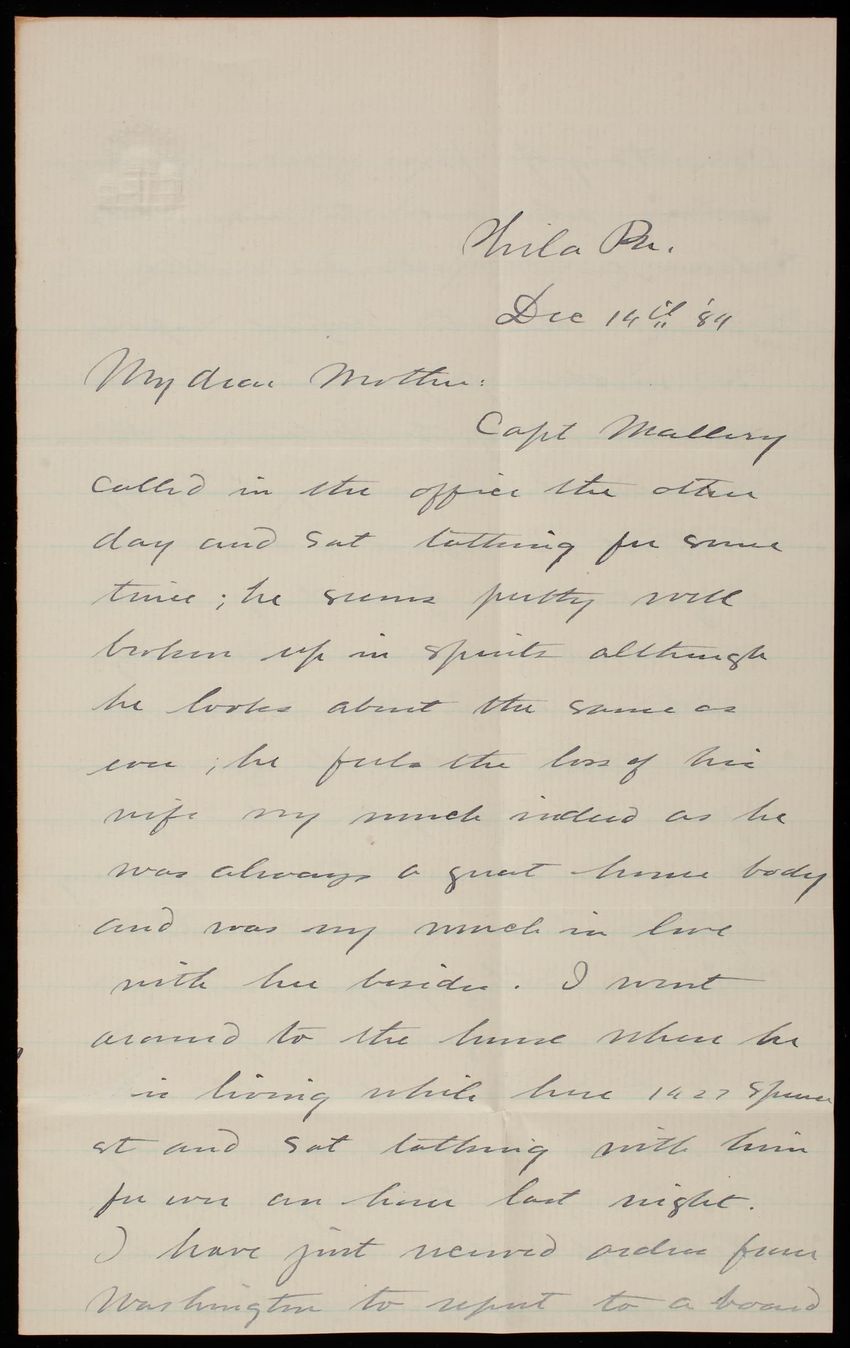 Phila Pa.
Dec 14th '84
My dear Mother:
Capt Mallery
called in the office the other
day and sat talking for some
time; he seems pretty well
broken up in spirits although
he looks about the same as
ever; he feels the loss of his
wife very much indeed as he
was always a great home body
and was very much in love
with her besides. I went
around to the house where he
is living while here 1427 Spruce
st and sat talking with him
for over an hour last night.
I have just received orders from
Washington to report to a board